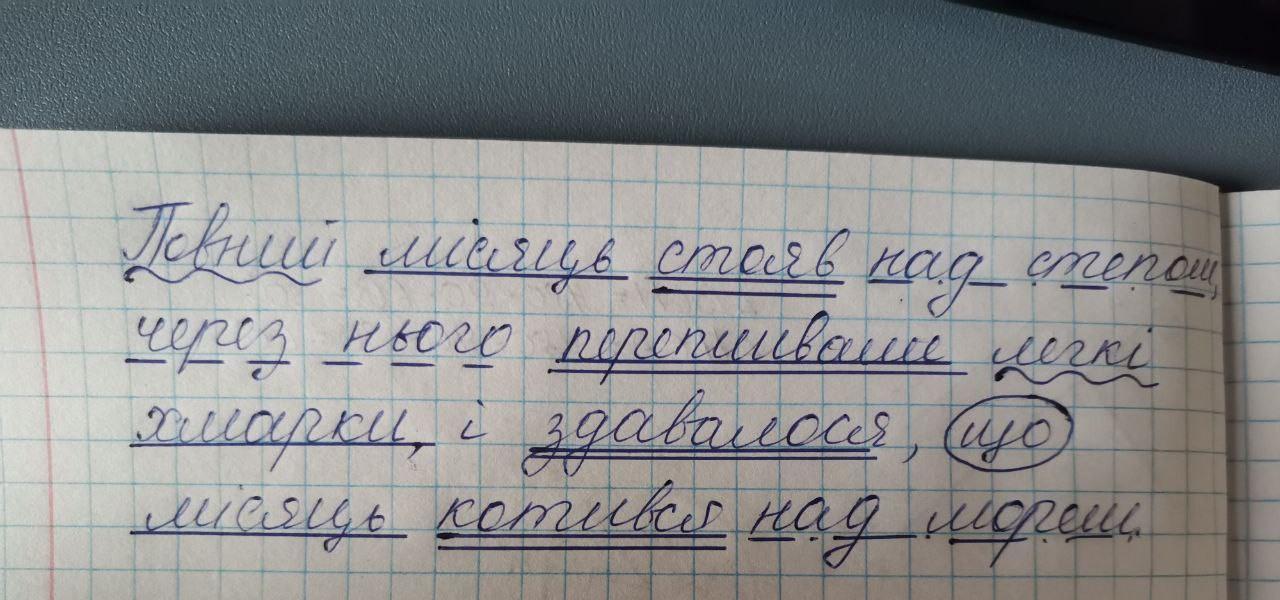 Повний місяць стояв над степом,
через нього перепливали легкі
хмарки, і здавалося, що
місяць котився над морем.